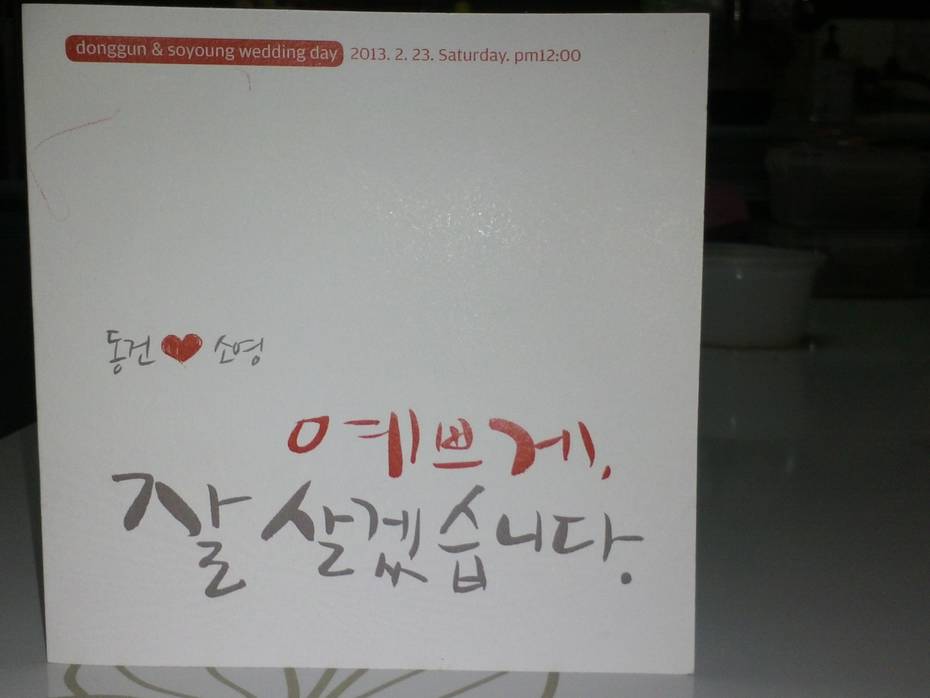 donggun & soyoung wedding day 2013. 2. 23. Saturday. pm12:00
동건 ♥ 소영
예쁘게,
잘 살겠습니다.